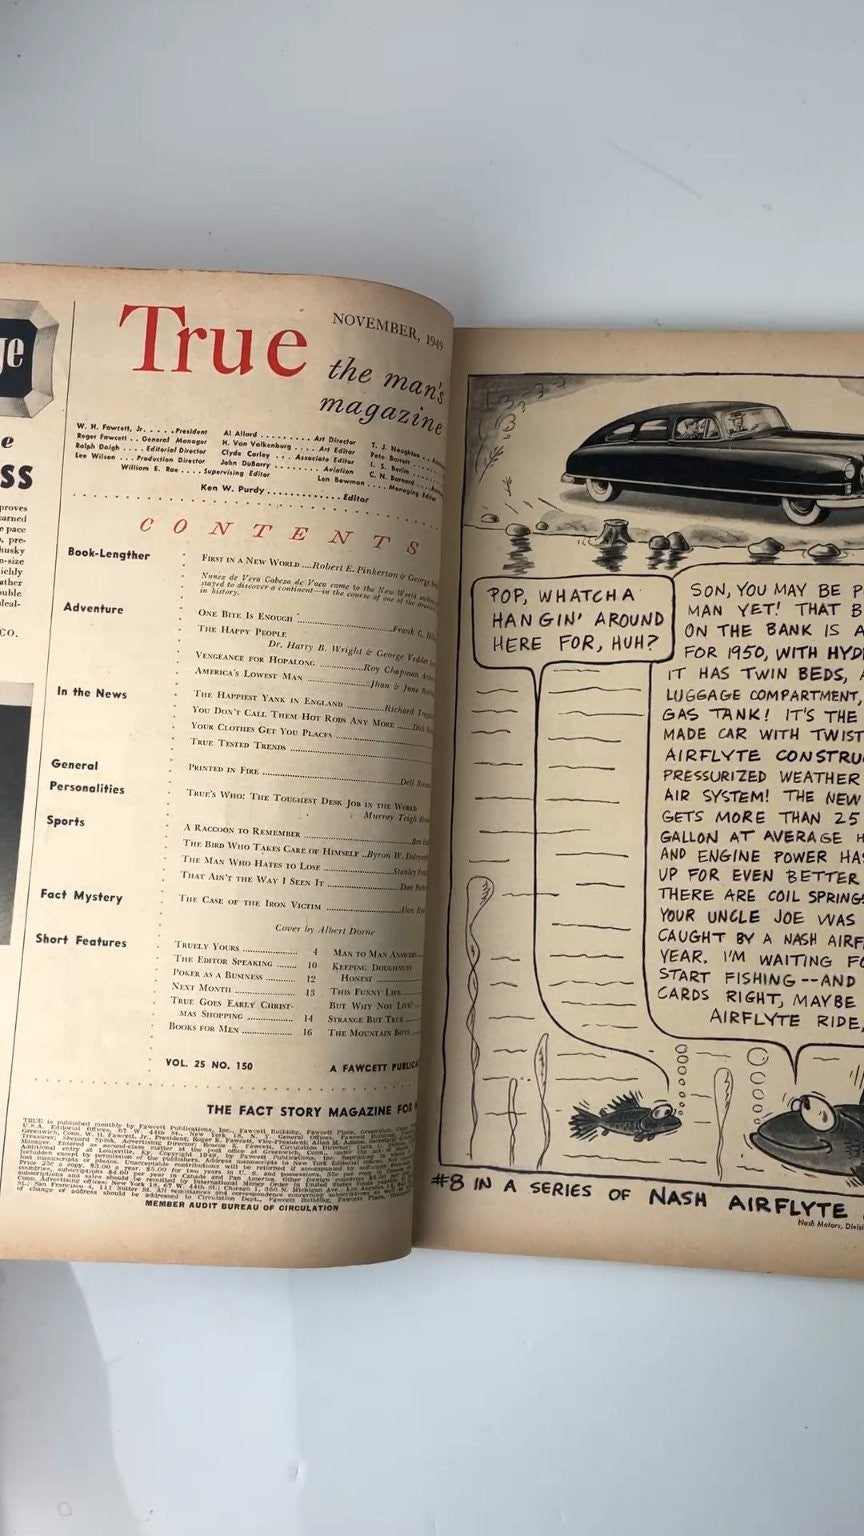 ge
e
SS
proves
earned
e pace
, pre-
husky
n-size
ichly
ather
ouble
deal-
CO.
True
NOVEMBER, 1949
the man's
magazine
W. H. Fawcett, Jr. . . . . . President
Roger Fawcett . . General Manager
Ralph Daigh . . . . Editorial Director
Leo Wilson . . . Production Director
William E. Rae . . . . Supervising Editor
Al Allard . . . . . . . . . Art Director
H. Van Valkenburg . . . . Art Editor
Clyde Carley . . . Associate Editor
John DuBarry . . . . . . . . Aviation
Len Bowman . . . . Managing Editor
T. J. Naughton
Pete Barrett
I. S. Berlin
C. N. Barnard
Ken W. Purdy . . . . . . . . . . . . Editor
CONTENTS
Book-Lengther
FIRST IN A NEW WORLD ....Robert E. Pinkerton & George
Nunez de Vera Cabeza de Vaca came to the New World
stayed to discover a continent—in the course of one of the
in history.
Adventure
ONE BITE IS ENOUGH ....Frank C.
THE HAPPY PEOPLE
Dr. Harry B. Wright & George Vedder
VENGEANCE FOR HOPALONG ....Roy Chapman
AMERICA'S LOWEST MAN ....Jhan & June
In the News
THE HAPPIEST YANK IN ENGLAND ....Richard
YOU DON'T CALL THEM HOT RODS ANY MORE ....Dick
YOUR CLOTHES GET YOU PLACES
TRUE TESTED TRENDS
General
PRINTED IN FIRE
Personalities
TRUE'S WHO: THE TOUGHEST DESK JOB IN THE WORLD
Murray Teigh
Sports
A RACCOON TO REMEMBER
THE BIRD WHO TAKES CARE OF HIMSELF ..Byron W.
THE MAN WHO HATES TO LOSE ....Stanley
THAT AIN'T THE WAY I SEE IT ....Dan
Fact Mystery
THE CASE OF THE IRON VICTIM ....Alan
Cover by Albert Dorne
Short Features
TRUELY YOURS .... 4
THE EDITOR SPEAKING .... 10
POKER AS A BUSINESS .... 12
NEXT MONTH .... 13
TRUE GOES EARLY CHRIST-
MAS SHOPPING .... 14
BOOKS FOR MEN .... 16
MAN TO MAN ANSWERS
KEEPING DOUGHNUTS
HONEST
THIS FUNNY LIFE
BUT WHY NOT LIVE?
STRANGE BUT TRUE
THE MOUNTAIN BOYS
VOL. 25 NO. 150
A FAWCETT
THE FACT STORY MAGAZINE FOR
TRUE is published monthly by Fawcett Publications, Inc., Fawcett Place,
MEMBER AUDIT BUREAU OF CIRCULATION
POP, WHATCHA
HANGIN' AROUND
HERE FOR, HUH?
SON, YOU MAY BE P
MAN YET! THAT B
ON THE BANK IS A
FOR 1950, WITH HYD
IT HAS TWIN BEDS, A
LUGGAGE COMPARTMENT,
GAS TANK! IT'S THE
MADE CAR WITH TWIST
AIRFLYTE CONSTRU
PRESSURIZED WEATHER
AIR SYSTEM! THE NEW
GETS MORE THAN 25
GALLON AT AVERAGE H
AND ENGINE POWER HA
UP FOR EVEN BETTER
THERE ARE COIL SPRING
YOUR UNCLE JOE WAS
CAUGHT BY A NASH AIRF
YEAR. I'M WAITING FO
START FISHING--AND
CARDS RIGHT, MAYBE
AIRFLYTE RIDE,
#8 IN A SERIES OF NASH AIRFLYTE
Nash Motors, Divisi